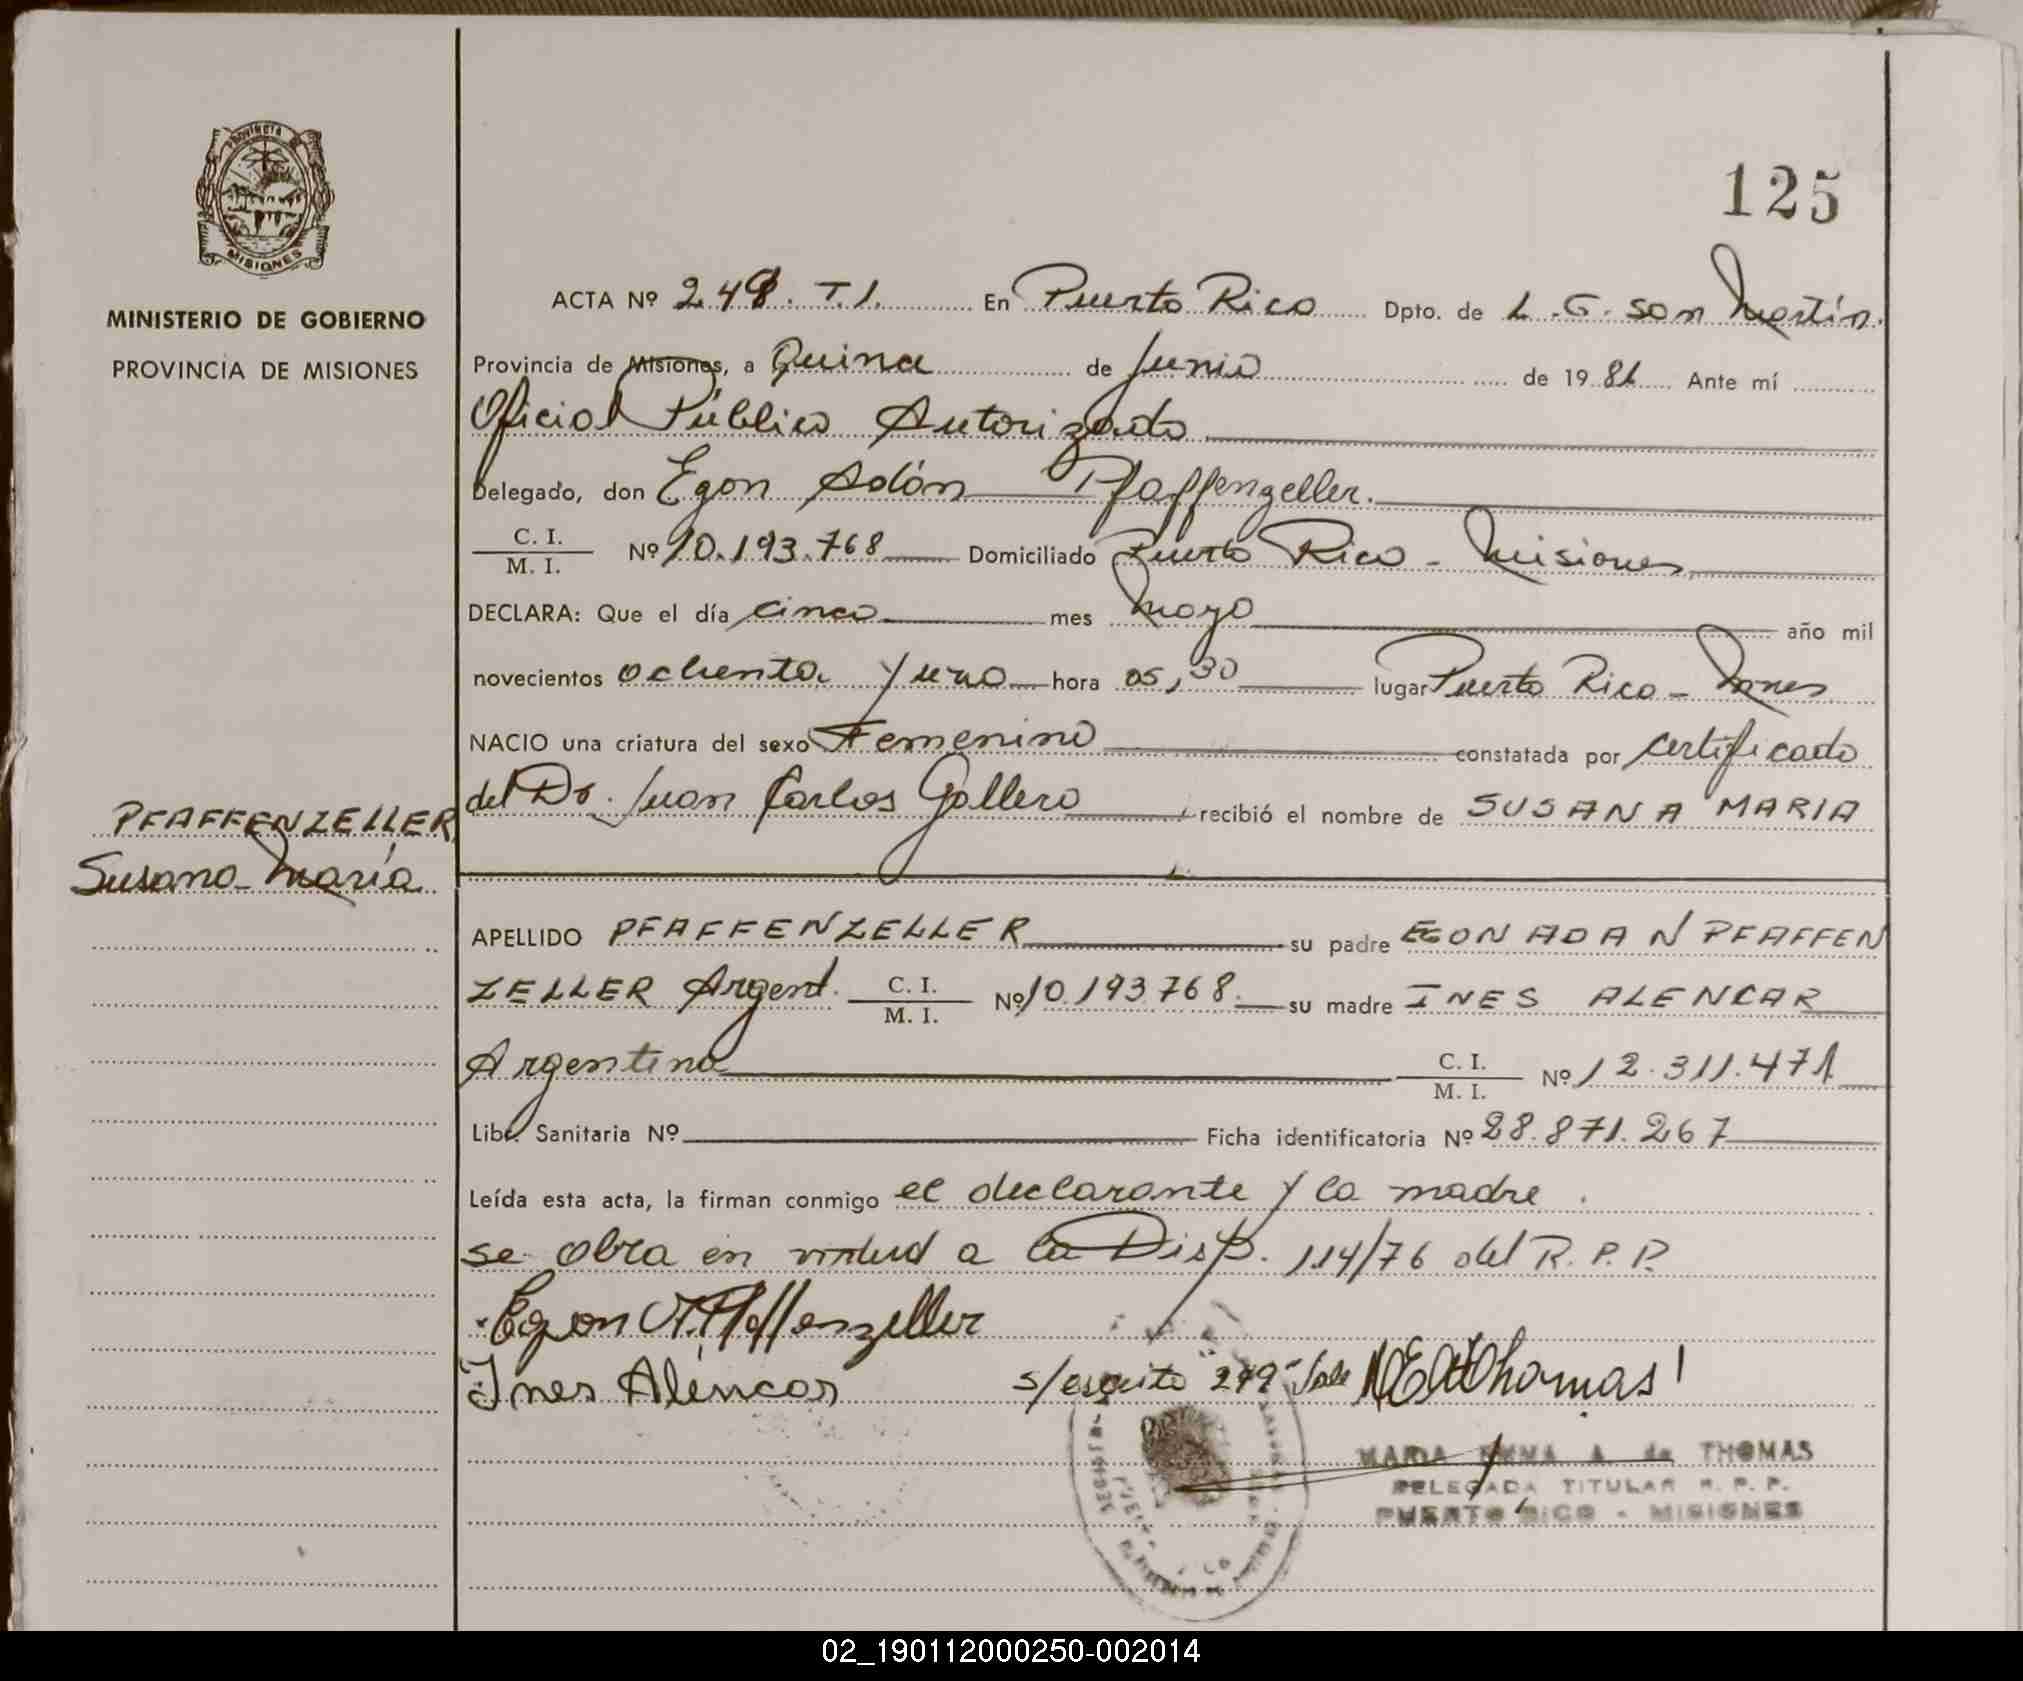 125
Provincia de
MISIONES
MINISTERIO DE GOBIERNO
PROVINCIA DE MISIONES
PFAFFENZELLER
Susana María
ACTA Nº 249. T.I. En Puerto Rico Dpto. de L.G. San Martín.
Provincia de Misiones, a Quince de Junio de 1981 Ante mí
Oficial Público Autorizado
Delegado, don Egon Adán Pfaffenzeller.
C. I.
M. I. Nº 10.193.768 Domiciliado Puerto Rico - Misiones
DECLARA: Que el día cinco mes Mayo año mil
novecientos ochenta y uno hora 05,30 lugar Puerto Rico - Mnes
NACIO una criatura del sexo Femenino constatada por certificado
del Dr. Juan Carlos Gallero, recibió el nombre de SUSANA MARIA
APELLIDO PFAFFENZELLER su padre EGON ADAN PFAFFEN
ZELLER Argent. C. I.
M. I. Nº 10.193.768. su madre INES ALENCAR
Argentina C. I.
M. I. Nº 12.311.471
Libr. Sanitaria Nº Ficha identificatoria Nº 28.871.267
Leída esta acta, la firman conmigo el declarante y la madre.
se obra en virtud a la Disp. 114/76 del R.P.P.
Egon A. Pfaffenzeller
Ines Alencar s/escrito "249" Vale MEAdThomas
MARIA EMMA A. de THOMAS
DELEGADA TITULAR R. P. P.
PUERTO RICO - MISIONES
02_190112000250-002014